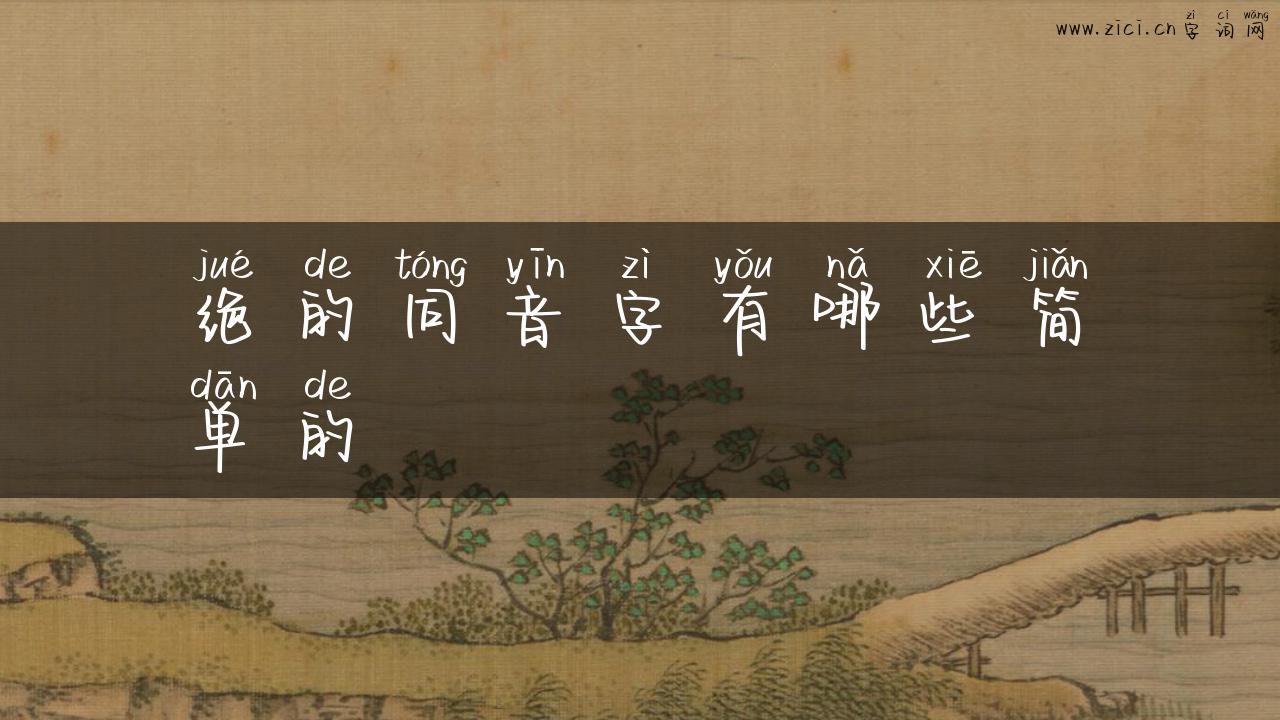 zì cí wǎng
www.zici.cn 字词网
jué de tóng yīn zì yǒu nǎ xiē jiǎn
绝的同音字有哪些简
dān de
单的